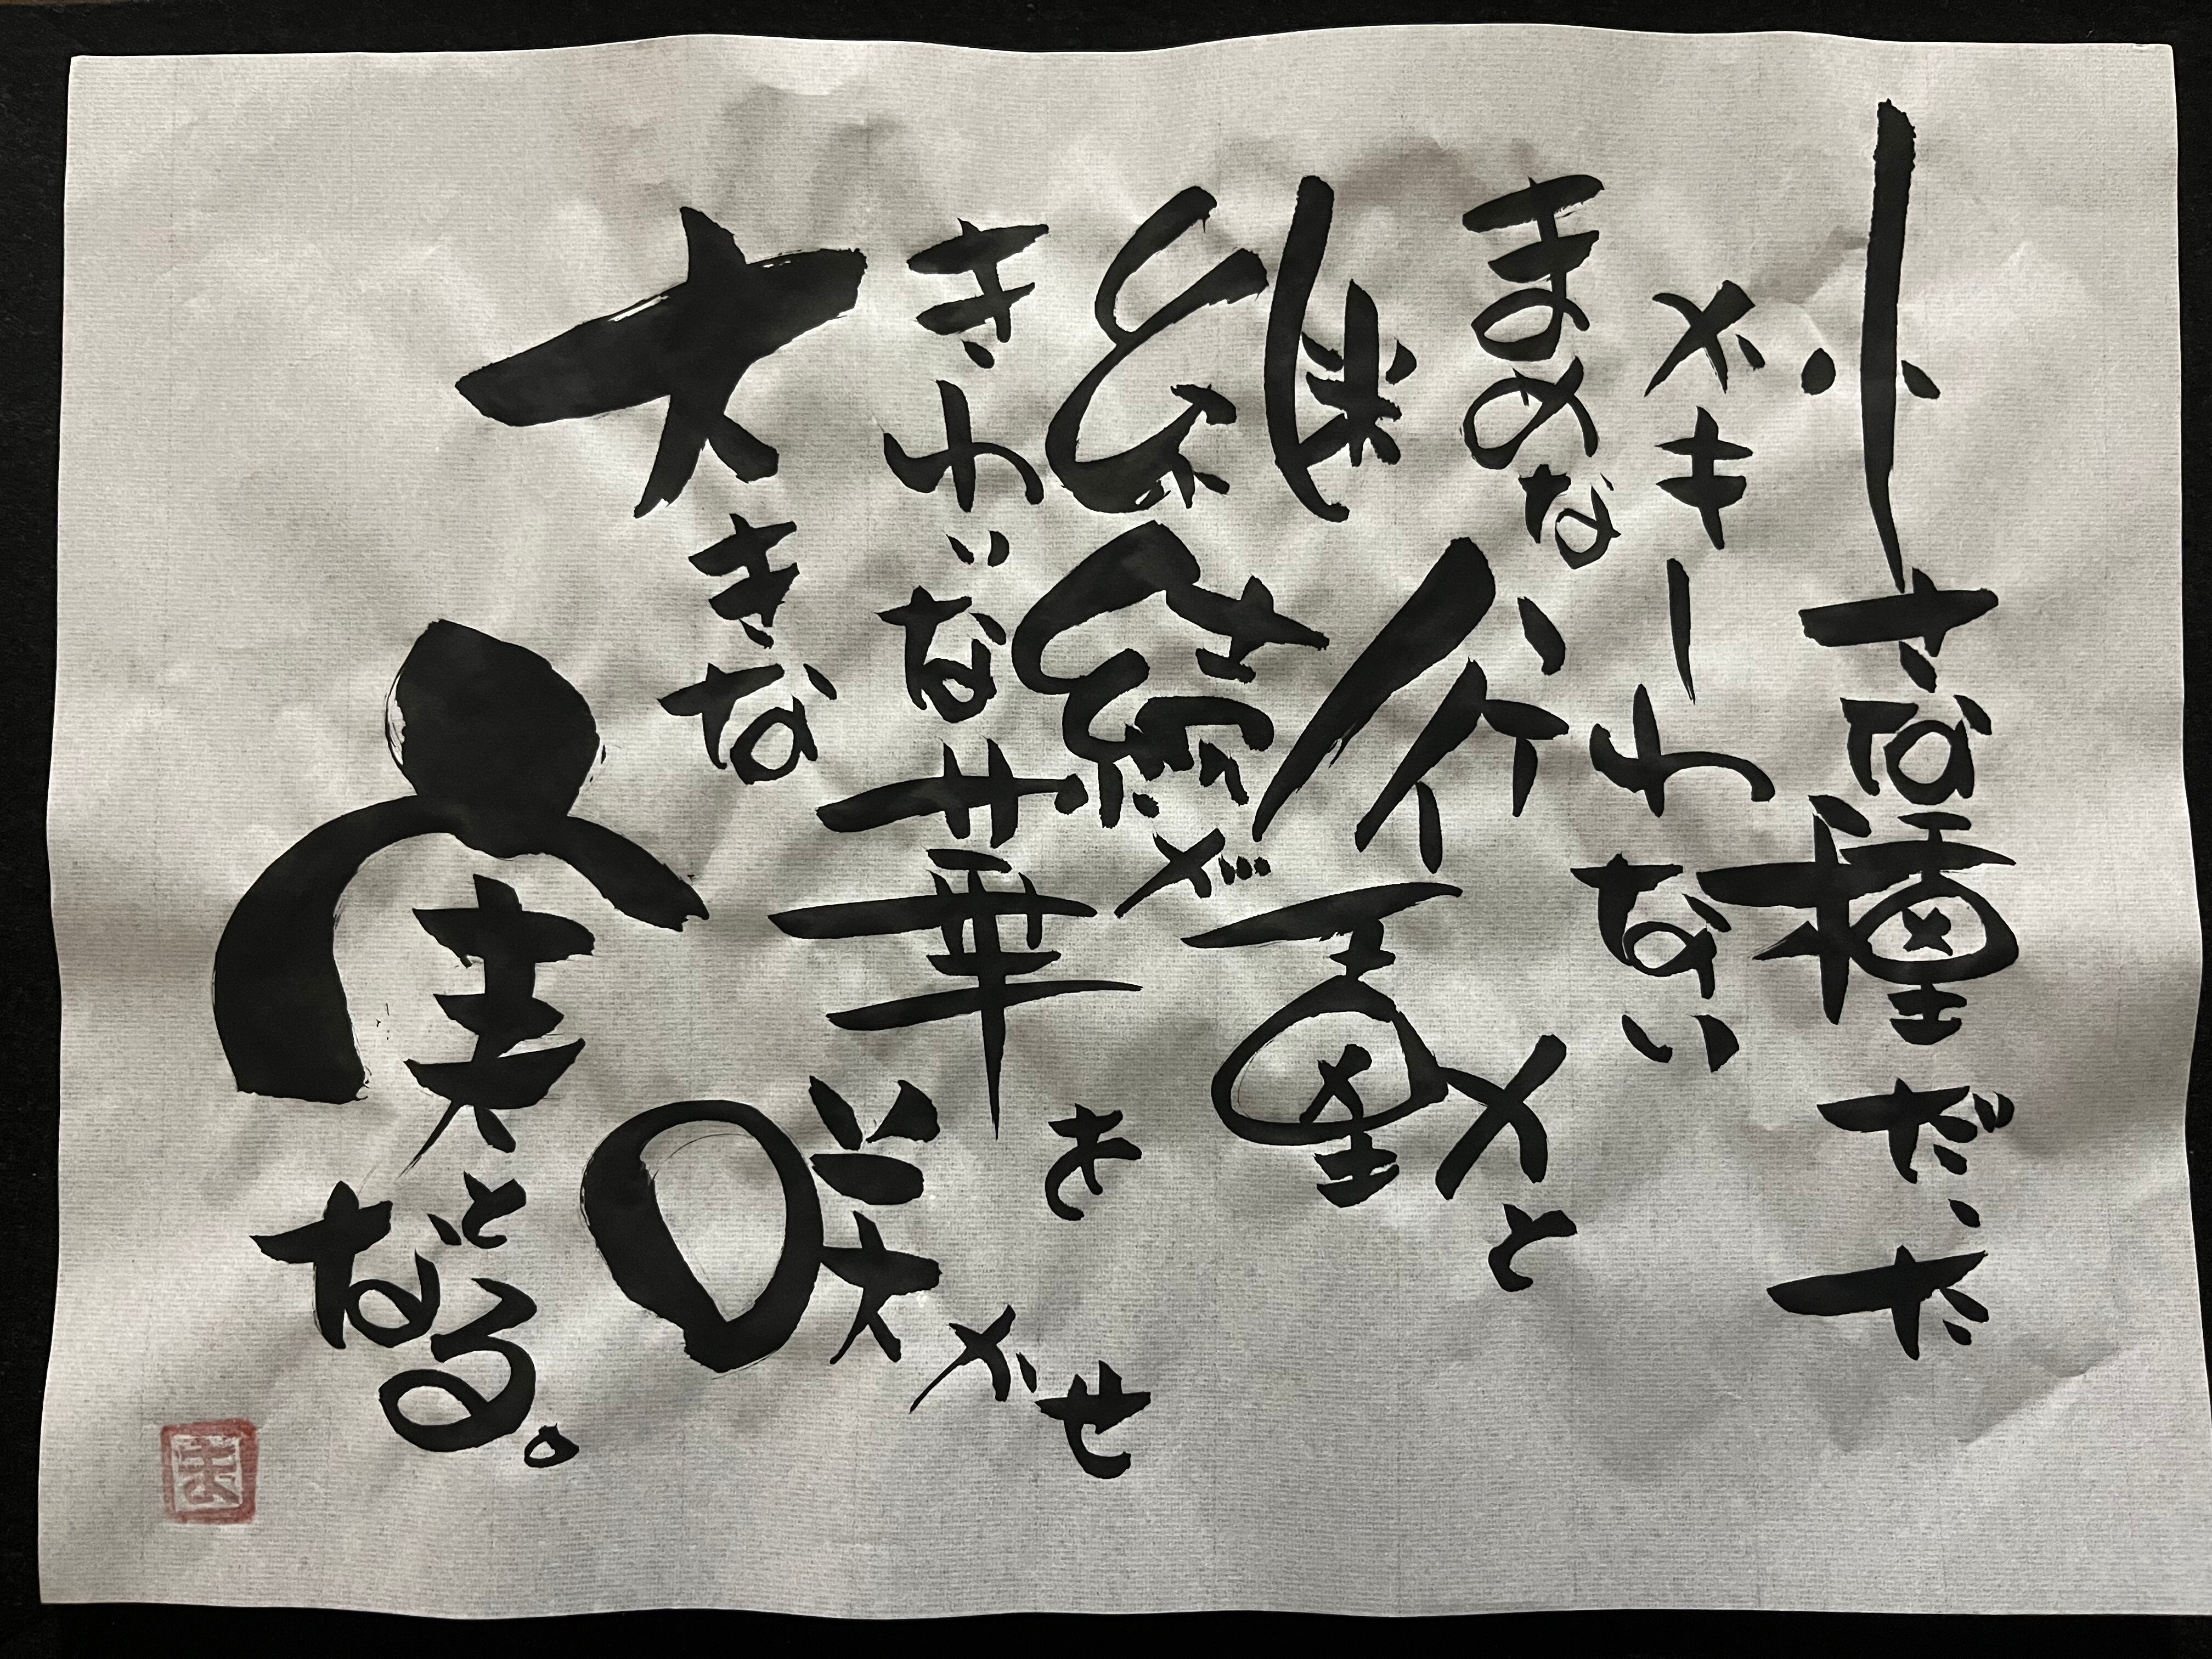 小さな種だった
かもしれない
まめな行動と
継続が
きれいな華を
咲かせ
大きな
実となる。